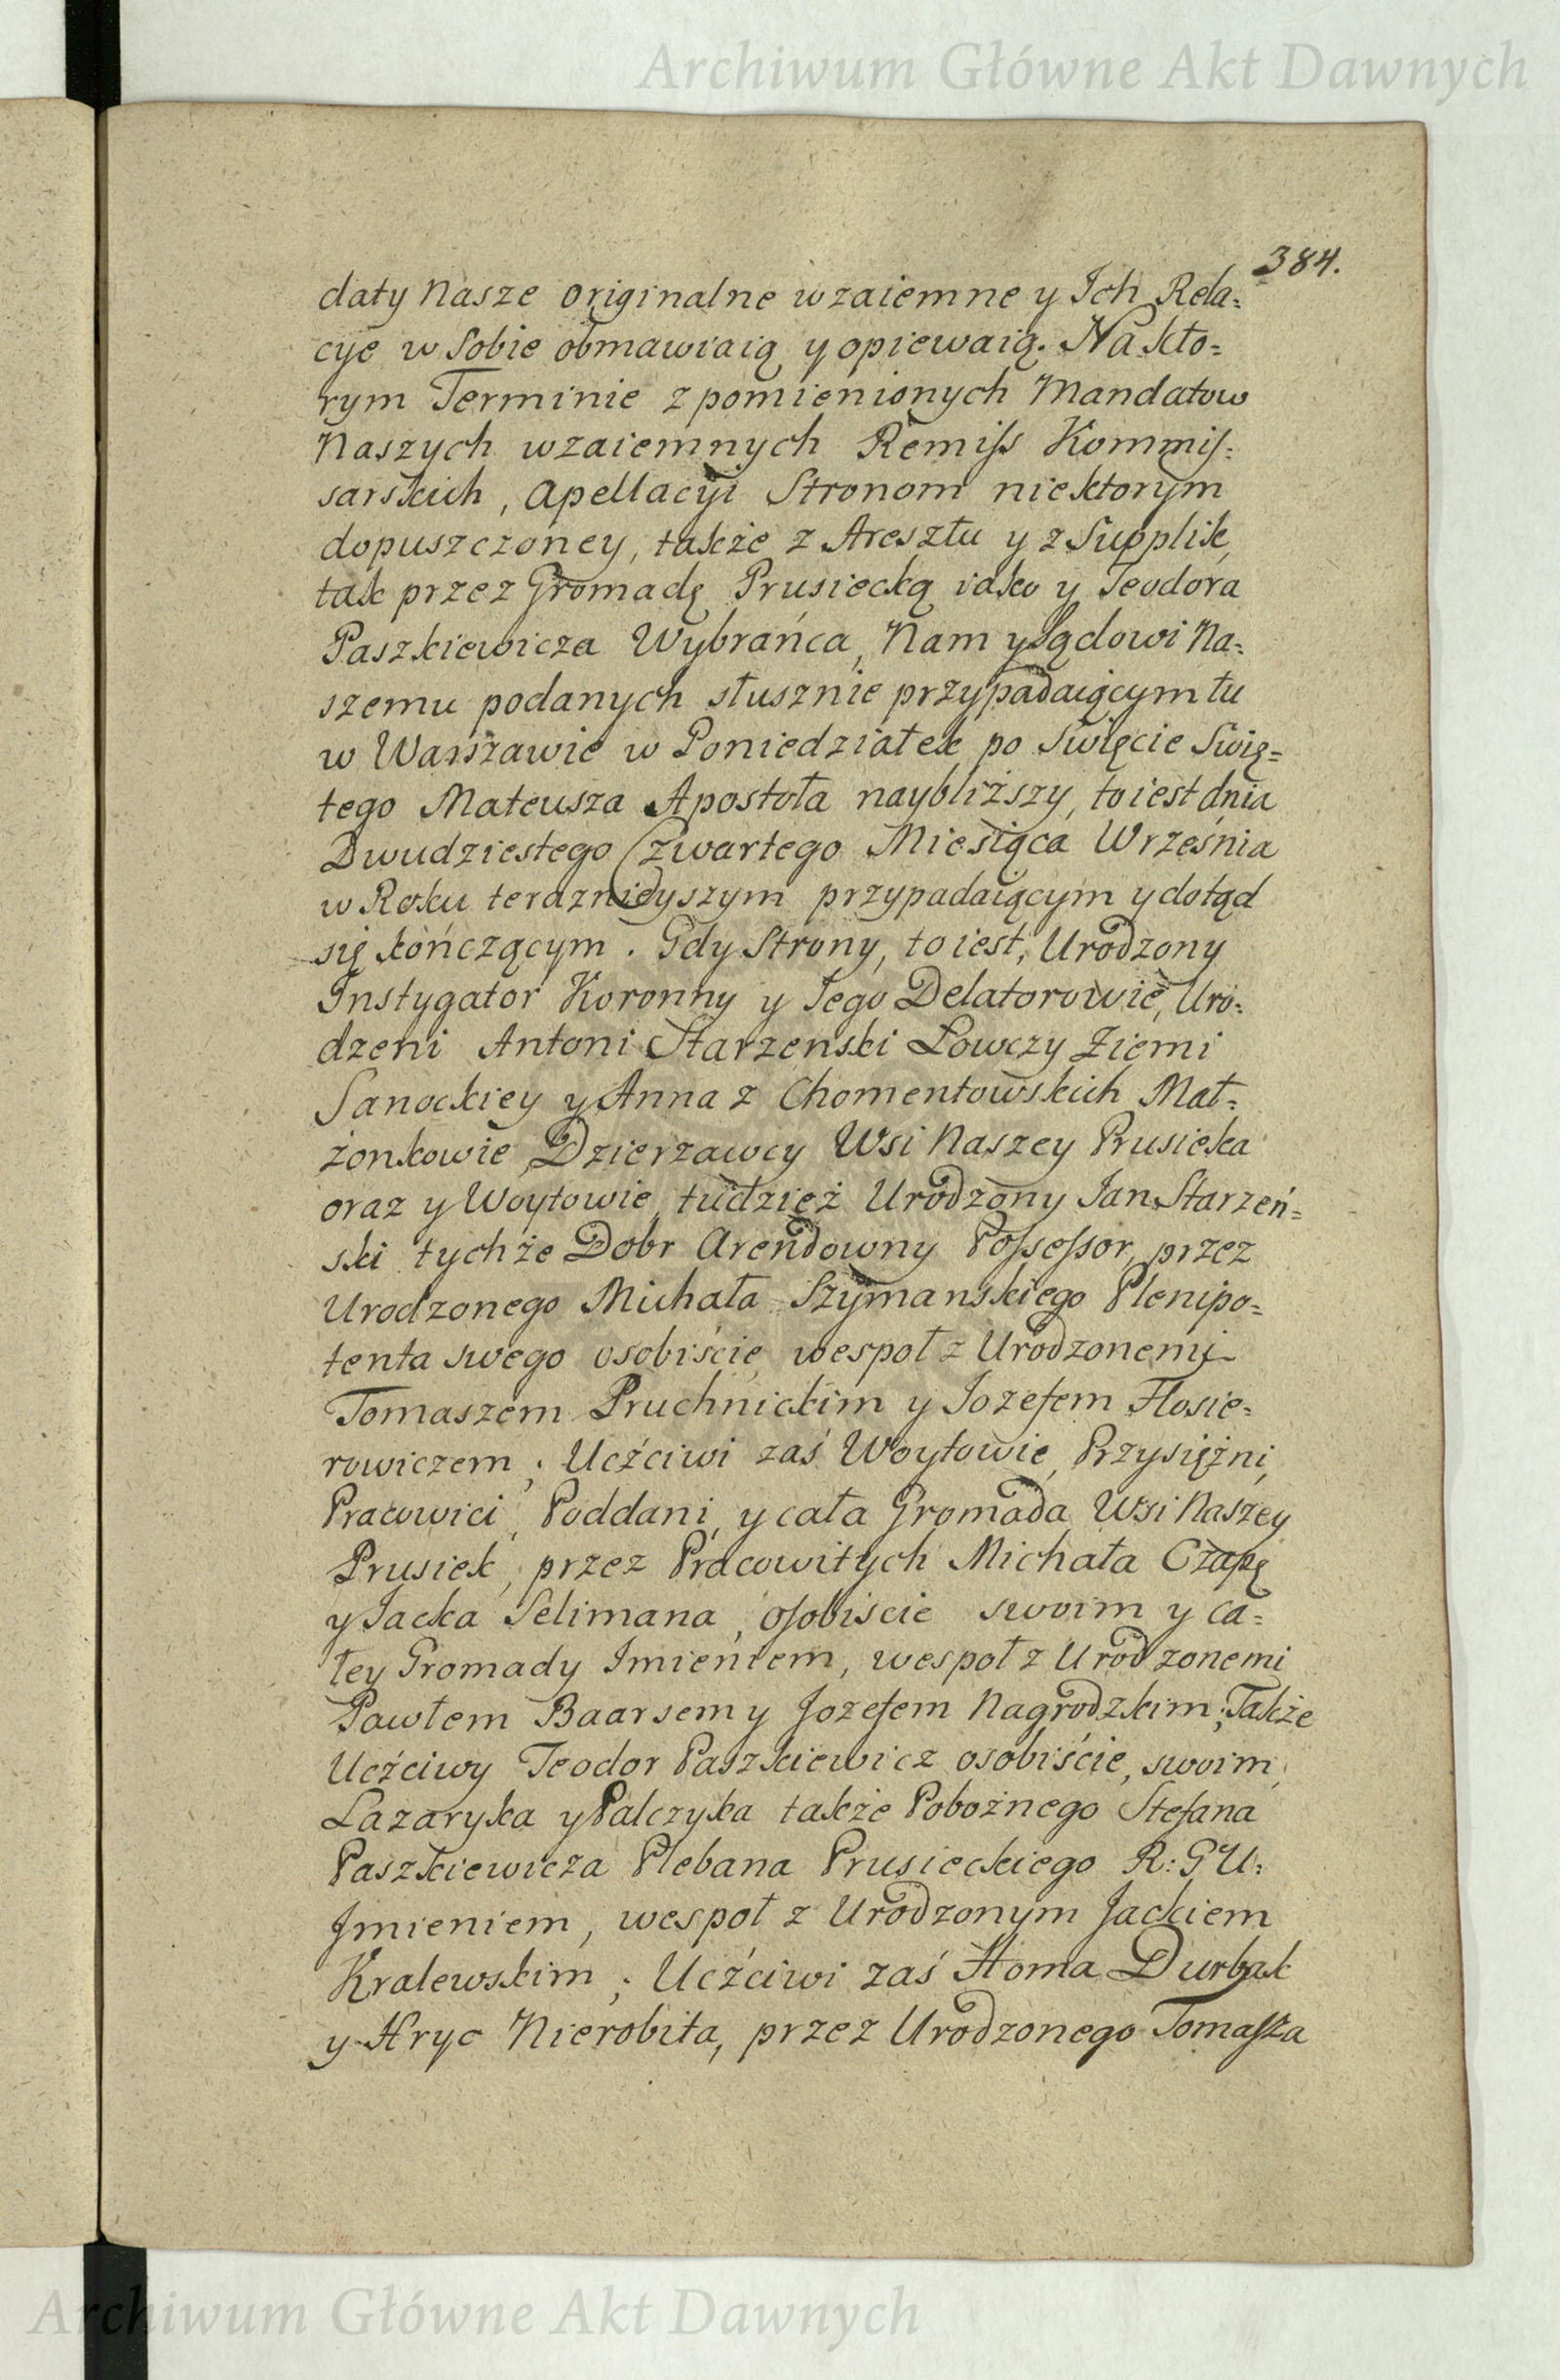 Archiwum Główne Akt Dawnych
384.
daty Nasze originalne wzaiemne y Ich Rela=
cye w Sobie obmawiaią y opiewaią. Na kto=
rym Terminie z pomienionych Mandatow
Naszych wzaiemnych Remiſs Kommiſ=
sarskich, Apellacyi Stronom niektorym
dopuszczoney, także z Aresztu y z Supplik,
tak przez Gromadę Prusiecką iako y Teodora
Paszkiewicza Wybrańca, Nam y Sądowi Na=
szemu podanych słusznie przypadaiącym tu
w Warszawie w Poniedziałek po Swięcie Swię=
tego Mateusza Apostoła naybliższy, to iest dnia
Dwudziestego Czwartego Miesiąca Września
w Roku teraznieyszym przypadaiącym y dotąd
się kończącym. Gdy Strony, to iest, Urodzony
Instygator Koronny y Iego Delatorowie, Uro=
dzeni Antoni Starzenski Łowczy Ziemi
Sanockiey y Anna z Chomentowskich Mał=
żonkowie Dzierzawcy Wsi Naszey Prusieka
oraz y Woytowie, tudzież Urodzony Ian Starzeń=
ski tychże Dobr Arendowny Poſseſsor, przez
Urodzonego Michała Szymanskiego Plenipo=
tenta swego osobiście wespoł z Urodzonemi
Tomaszem Pruchnickim y Iozefem Flosie=
rowiczem; Uczciwi zaś Woytowie, Przysiężni,
Pracowici, Poddani, y cała Gromada Wsi Naszey
Prusiek, przez Pracowitych Michała Czapę
y Iacka Selimana, oſobiscie swoim y ca=
łey Gromady Imieniem, wespoł z Urodzonemi
Pawłem Baarsem y Jozefem Nagrodzkim; Także
Uczciwy Teodor Paszkiewicz osobiście, swoim,
Łazaryka y Palczyka także Pobożnego Stefana
Paszkiewicza Plebana Prusieckiego R: G U:
Jmieniem, wespoł z Urodzonym Jackiem
Kralewskim; Uczciwi zaś Homa Durbak
y Hryc Nierobita, przez Urodzonego Tomaſza
Archiwum Główne Akt Dawnych